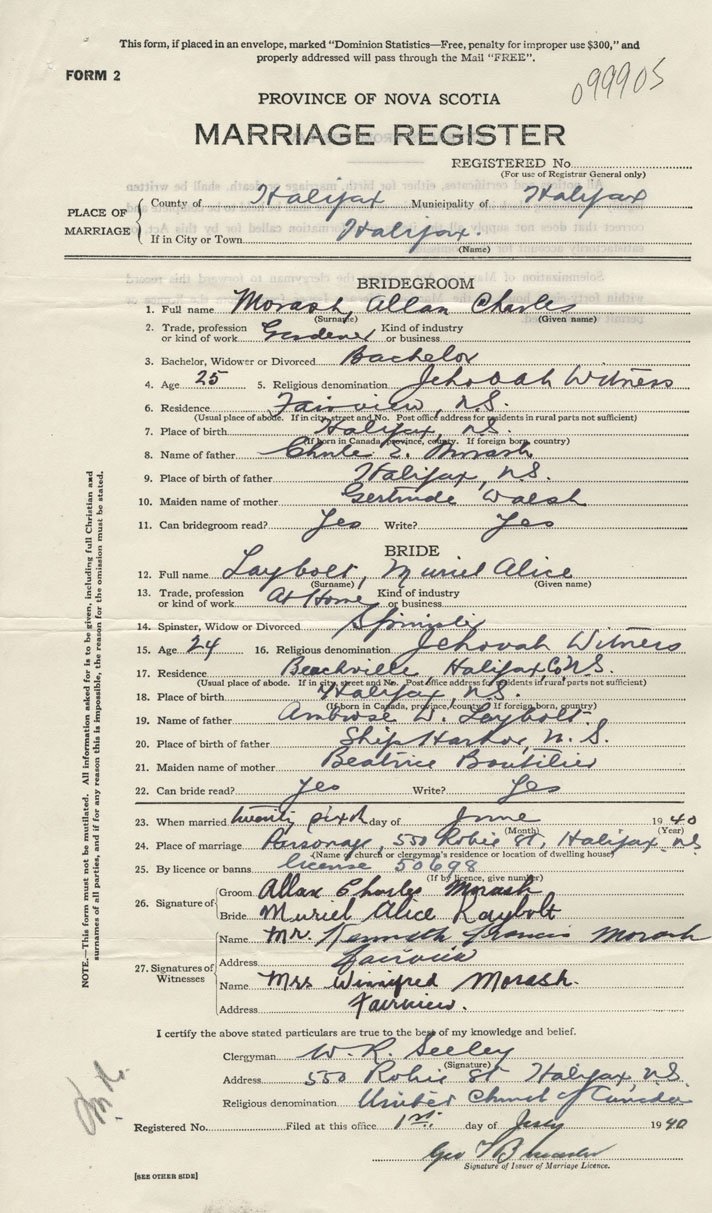 This form, if placed in an envelope, marked "Dominion Statistics—Free, penalty for improper use $300," and
properly addressed will pass through the Mail "FREE".
FORM 2
099905
PROVINCE OF NOVA SCOTIA
MARRIAGE REGISTER
REGISTERED No.
(For use of Registrar General only)
PLACE OF MARRIAGE
County of Halifax Municipality of Halifax
If in City or Town Halifax.
(Name)
BRIDEGROOM
1. Full name Morash, Allan Charles
(Surname) (Given name)
2. Trade, profession or kind of work Gardener Kind of industry or business
3. Bachelor, Widower or Divorced Bachelor
4. Age 25 5. Religious denomination Jehovah Witness
6. Residence Fairview, N.S.
(Usual place of abode. If in city, street and No. Post office address for residents in rural parts not sufficient)
7. Place of birth Halifax, N.S.
(If born in Canada, province, county. If foreign born, country)
8. Name of father Charle E. Morash
9. Place of birth of father Halifax, N.S.
10. Maiden name of mother Gertrude Walsh
11. Can bridegroom read? Yes Write? Yes
BRIDE
12. Full name Laybolt, Muriel Alice
(Surname) (Given name)
13. Trade, profession or kind of work At Home Kind of industry or business
14. Spinster, Widow or Divorced Spinster
15. Age 24 16. Religious denomination Jehovah Witness
17. Residence Beachville, Halifax, Co. N.S.
(Usual place of abode. If in city, street and No. Post office address for residents in rural parts not sufficient)
18. Place of birth Halifax, N.S.
(If born in Canada, province, county. If foreign born, country)
19. Name of father Ambrose W. Laybolt
20. Place of birth of father Ship Harbor, N.S.
21. Maiden name of mother Beatrice Boutilier
22. Can bride read? Yes Write? Yes
23. When married twenty sixth day of June 1940
(Month) (Year)
24. Place of marriage Parsonage, 550 Robie St, Halifax, NS
(Name of church or clergyman's residence or location of dwelling house)
25. By licence or banns license 50698
(If by licence, give number)
26. Signature of
Groom Allan Charles Morash
Bride Muriel Alice Laybolt
27. Signatures of Witnesses
Name Mr. Kenneth Francis Morash
Address Fairview
Name Mrs Winnifred Morash.
Address Fairview.
NOTE.—This form must not be mutilated. All information asked for is to be given, including full Christian and
surnames of all parties, and if for any reason this is impossible, the reason for the omission must be stated.
I certify the above stated particulars are true to the best of my knowledge and belief.
Clergyman W. R. Seeley
(Signature)
Address 550 Robie St Halifax, N.S.
Religious denomination United Church of Canada
Registered No. Filed at this office 1st. day of July 1940
Geo
Signature of Issuer of Marriage Licence.
[SEE OTHER SIDE]